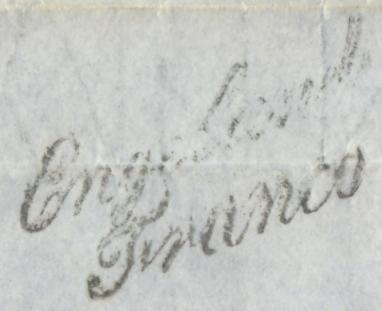 Engeland
Franco